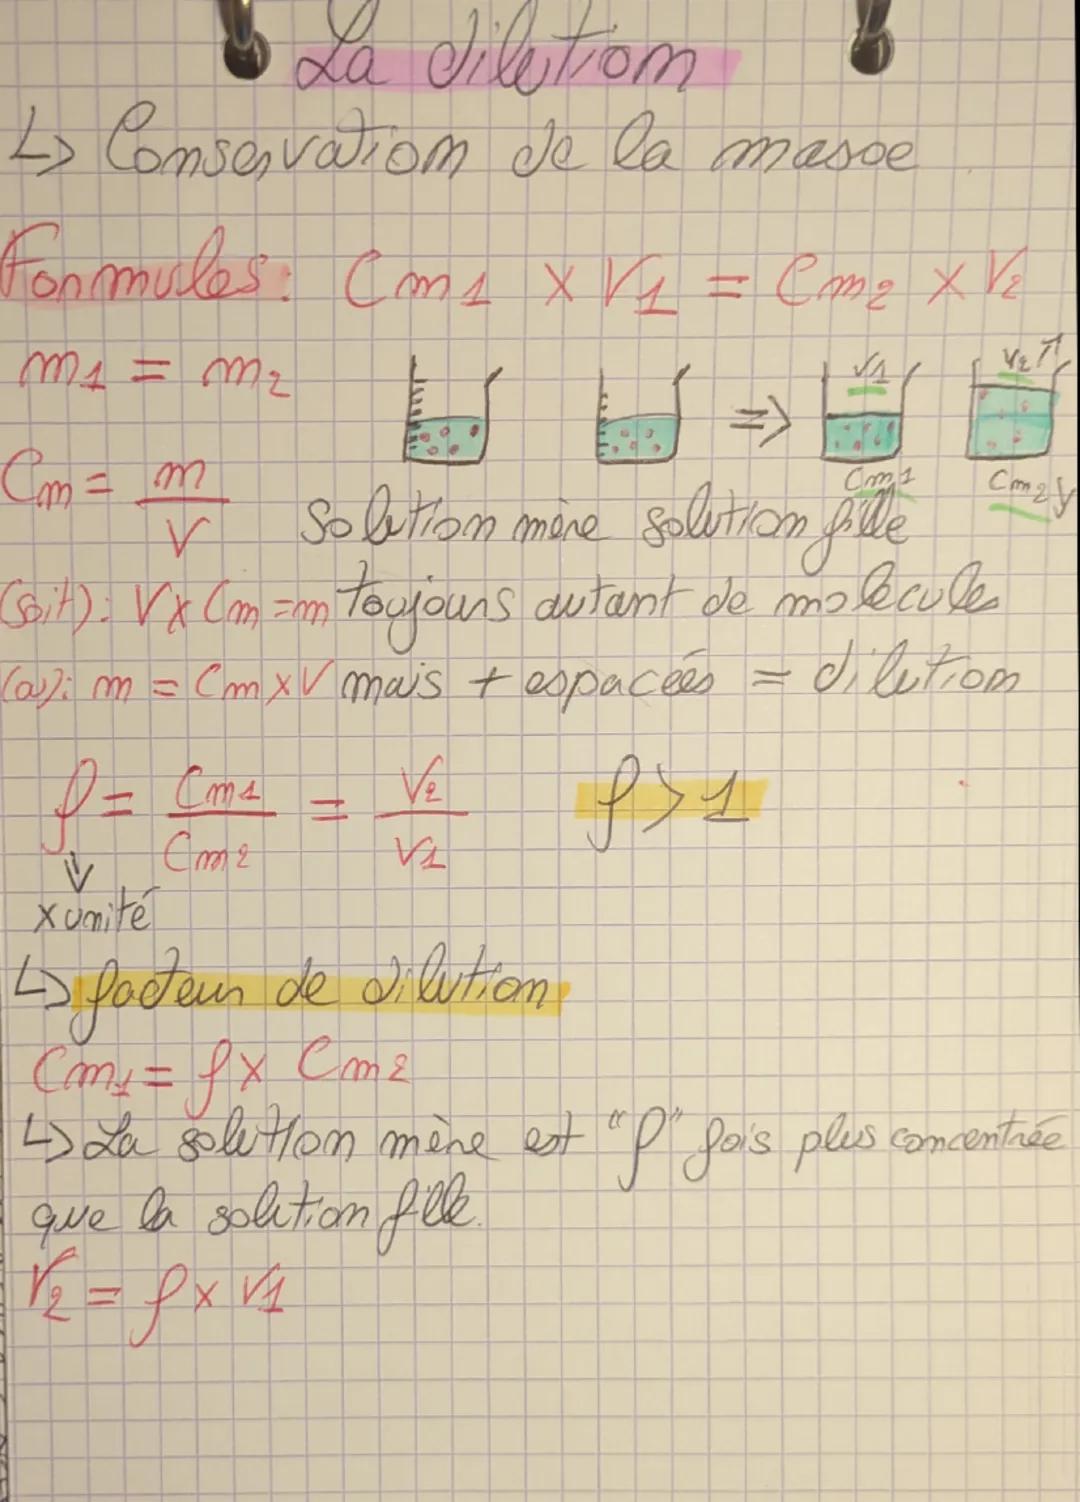 La dilution
↳ Conservation de la masse
Formules: Cm1 x V1 = Cm2 x V2
m1 = m2
V1 V2 ↗
=>
Cm1 Cm2 ↘
Cm = m/V
Solution mère solution fille
(soit): V x Cm = m toujours autant de molécules
m = Cm x V mais + espacées = dilution
f = Cm1/Cm2 = V2/V1 f > 1
⇓
x unité
↳ facteur de dilution
Cm1 = f x Cm2
↳ La solution mère est "f" fois plus concentrée
que la solution fille.
V2 = f x V1